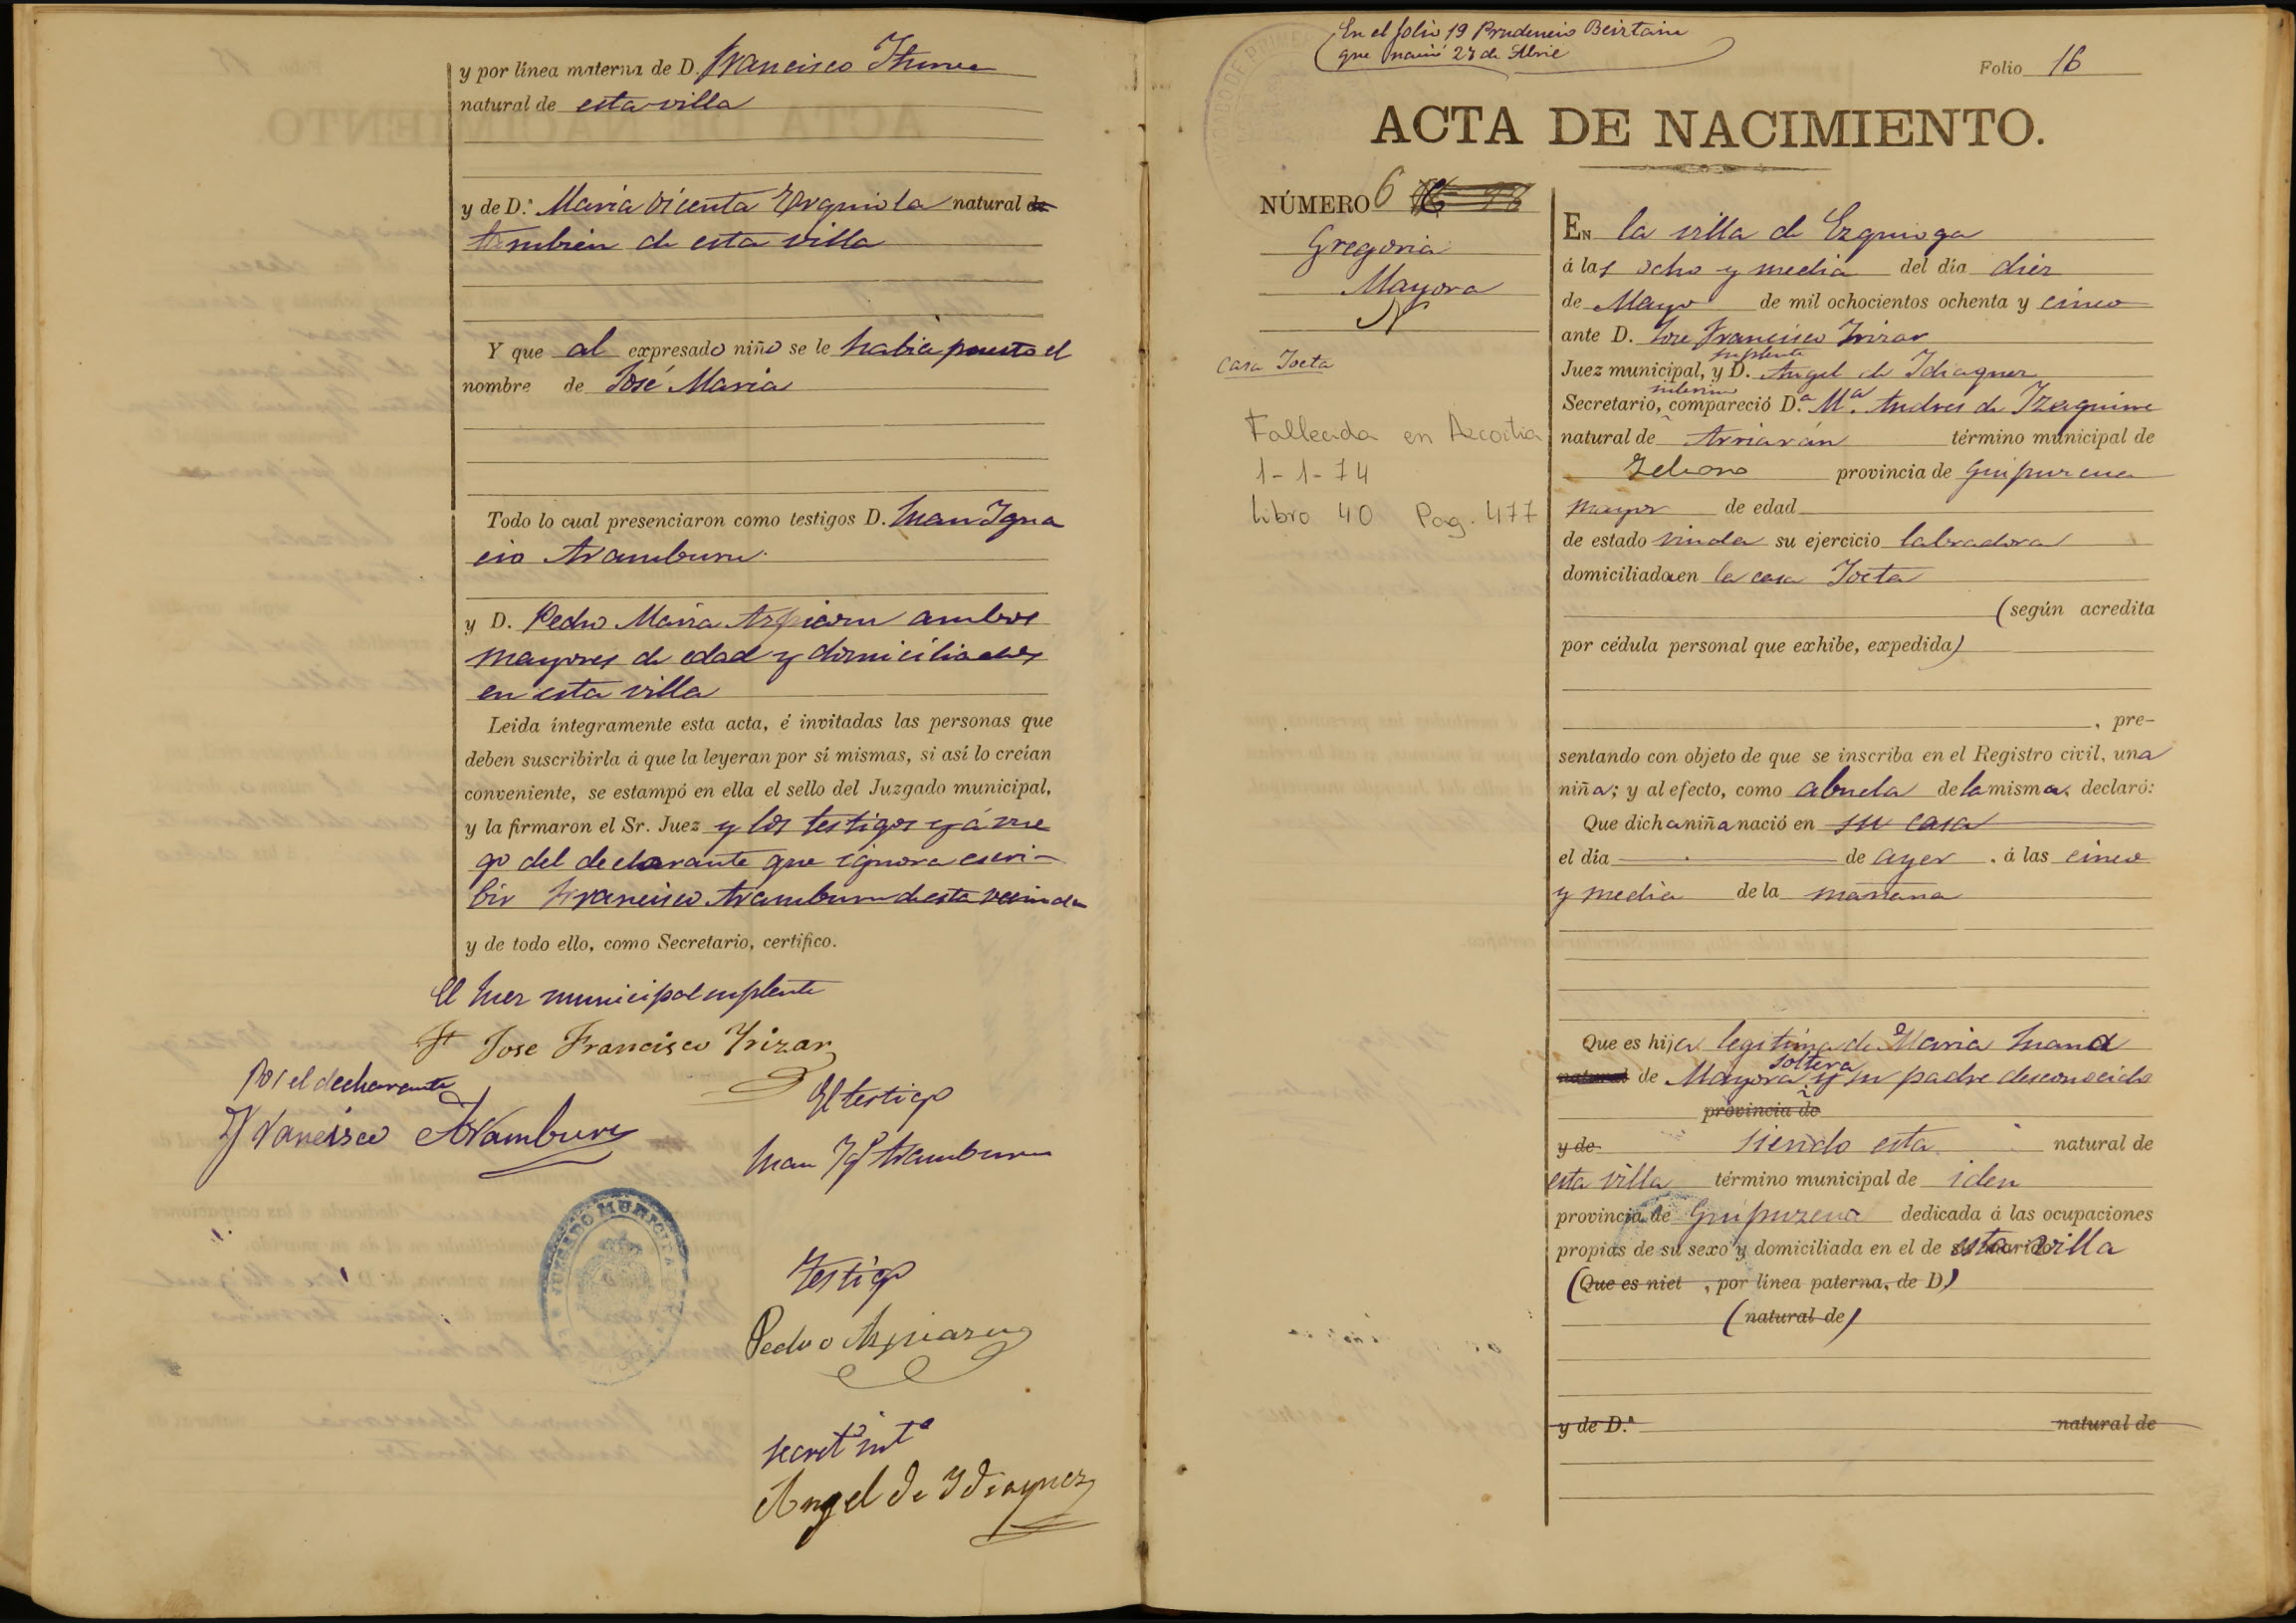 y por línea materna de D. Francisco
natural de esta villa
y de D.ª Maria Vicenta natural de
tambien de esta villa
Y que al expresado niño se le habia puesto el
nombre de José Maria
Todo lo cual presenciaron como testigos D. Juan Igna
cio Aramburu
y D. Pedro Maria Azpiazu ambos
mayores de edad y domiciliados
en esta villa
Leida íntegramente esta acta, é invitadas las personas que
deben suscribirla á que la leyeran por sí mismas, si así lo creían
conveniente, se estampó en ella el sello del Juzgado municipal,
y la firmaron el Sr. Juez y los testigos y á rue
go del declarante que ignora escri-
bir Francisco Aramburu de esta vecindad
y de todo ello, como Secretario, certifico.
El Juez municipal suplente
Jose Francisco Yrizar
Por el declarante
Francisco Aramburu
El testigo
Juan Ig.º Aramburu
JUZGADO MUNICIPAL
Testigo
Pedro Azpiazu
Secret.º int.º
Angel de Ydiaquez
En el folio 19 Prudencio Beiztain
que nació 27 de Abril
Folio 16
ACTA DE NACIMIENTO.
NÚMERO 6
Gregoria
Mayora
Casa Joeta
Fallecida en Azcoitia
1-1-74
Libro 40 Pag. 477
EN la villa de Ezquioga
á las ocho y media del día diez
de Mayo de mil ochocientos ochenta y cinco
ante D. Jose Francisco Irizar
suplente
Juez municipal, y D. Angel de Idiaquez
interino
Secretario, compareció D.ª M.ª Andres de Izaguirre
natural de Arriarán término municipal de
provincia de Guipuzcua
mayor de edad
de estado viuda su ejercicio labradora
domiciliada en la casa Joeta
(según acredita
por cédula personal que exhibe, expedida)
, pre-
sentando con objeto de que se inscriba en el Registro civil, una
niña; y al efecto, como abuela de la misma, declaró:
Que dicha niña nació en su casa
el día de ayer, á las cinco
y media de la mañana
Que es hija legitima de Maria Juana
soltera
natural de Mayora y su padre desconocido
provincia de
y de siendo esta natural de
esta villa término municipal de iden
provincia de Guipuzcua dedicada á las ocupaciones
propias de su sexo y domiciliada en el de su marido esta villa
(Que es niet , por línea paterna, de D)
(natural de)
y de D.ª natural de